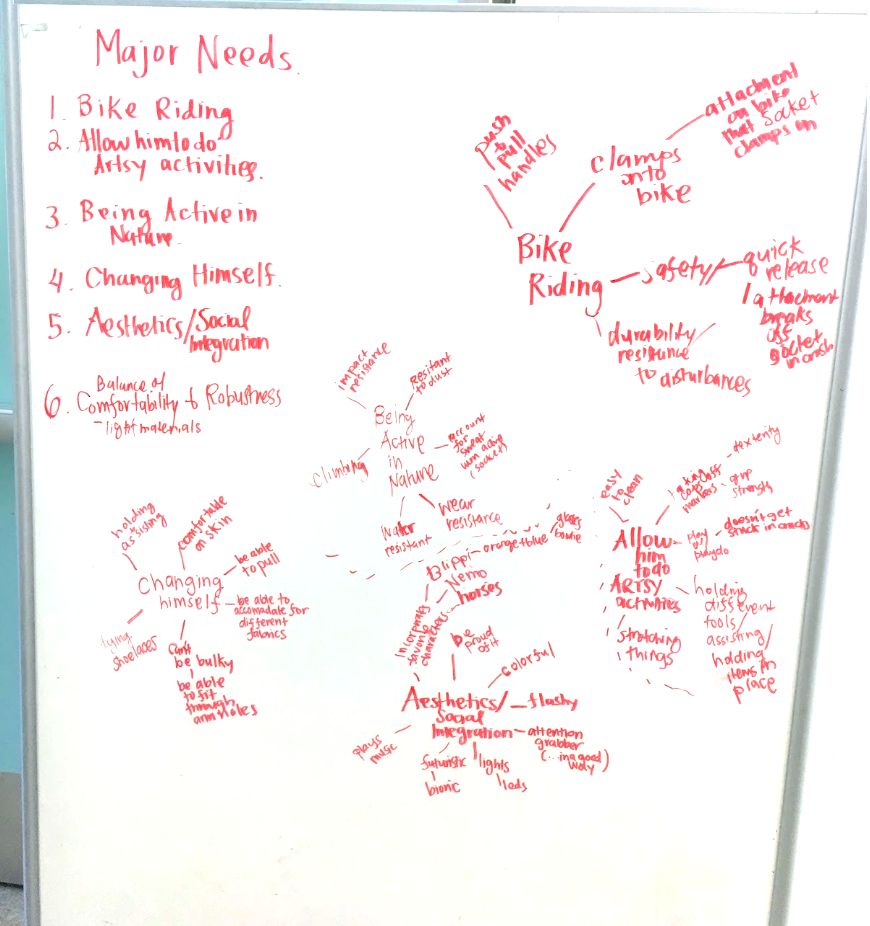 Major Needs.
1. Bike Riding
2. Allow him to do
Artsy activities.
3. Being Active in
Nature.
4. Changing Himself.
5. Aesthetics/Social
Integration
6. Balance of
Comfortability & Robustness
- light materials
push
to
pull
handles
clamps
onto
bike
attachment
on bike
that socket
clamps on
Bike
Riding
safety
quick
release
attachment
breaks
off
socket
in crash
durability
resistance
to disturbances
impact
resistance
Resitant
to dust
Being
Active
in
Nature
account
for
sweat
(sockets)
climbing
Water
resistant
wear
resistance
holding
assisting
comfortable
on skin
be able
to pull
Changing
himself
be able to
accomadate for
different
fabrics
tying
shoelaces
Can't
be bulky
be able
to fit
through
arm holes
Blippi - orange + blue
glasses
bowtie
Nemo
horses
Incorporate
favorite
characters
be
proud
of it
colorful
Aesthetics/
Social
Integration
flashy
attention
grabber
(...in a good
way)
plays
music
futuristic
bionic
lights
leds
easy
to clean
taking off
caps
markers
dexterity
grip
strength
Allow
him
to do
Artsy
activities
play
w/
playdo
doesn't get
stuck in cracks
holding
different
tools/
assisting/
holding
items in
place
stretching
things